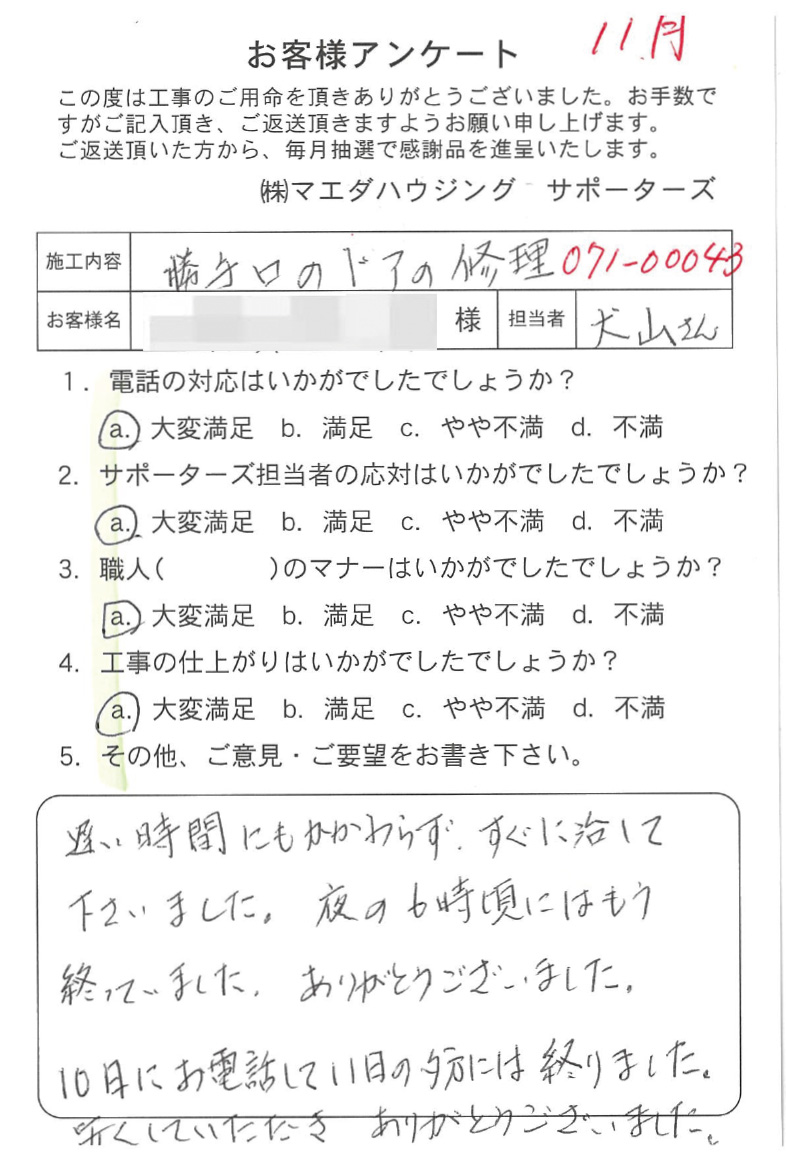 11月
お客様アンケート
この度は工事のご用命を頂きありがとうございました。お手数で
すがご記入頂き、ご返送頂きますようお願い申し上げます。
ご返送頂いた方から、毎月抽選で感謝品を進呈いたします。
㈱マエダハウジング サポーターズ
施工内容 勝手口のドアの修理 071-00043
お客様名 様 担当者 犬山さん
1. 電話の対応はいかがでしたでしょうか？
a. 大変満足 b. 満足 c. やや不満 d. 不満
2. サポーターズ担当者の応対はいかがでしたでしょうか？
a. 大変満足 b. 満足 c. やや不満 d. 不満
3. 職人( )のマナーはいかがでしたでしょうか？
a. 大変満足 b. 満足 c. やや不満 d. 不満
4. 工事の仕上がりはいかがでしたでしょうか？
a. 大変満足 b. 満足 c. やや不満 d. 不満
5. その他、ご意見・ご要望をお書き下さい。
遅い時間にもかかわらず、すぐに治して
下さいました。夜の6時頃にはもう
終っていました。ありがとうございました。
10日にお電話して11日の夕方には終りました。
していただき ありがとうございました。